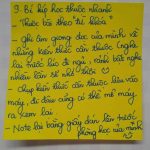 3. Bí kíp học thuộc nhanh
- Thuộc bài theo "từ khóa"
- Ghi âm giọng đọc của mình về
những kiến thức cần thuộc (nghe
lại trước lúc đi ngủ, rảnh bất ngờ
nhiều lần sẽ nhớ thôi
- Chụp kiến thức cần thuộc lưu vào
máy, đi đâu cũng có thể mở máy
ra xem lại
- Note lại bằng giấy dán lên trước
phòng học của mình